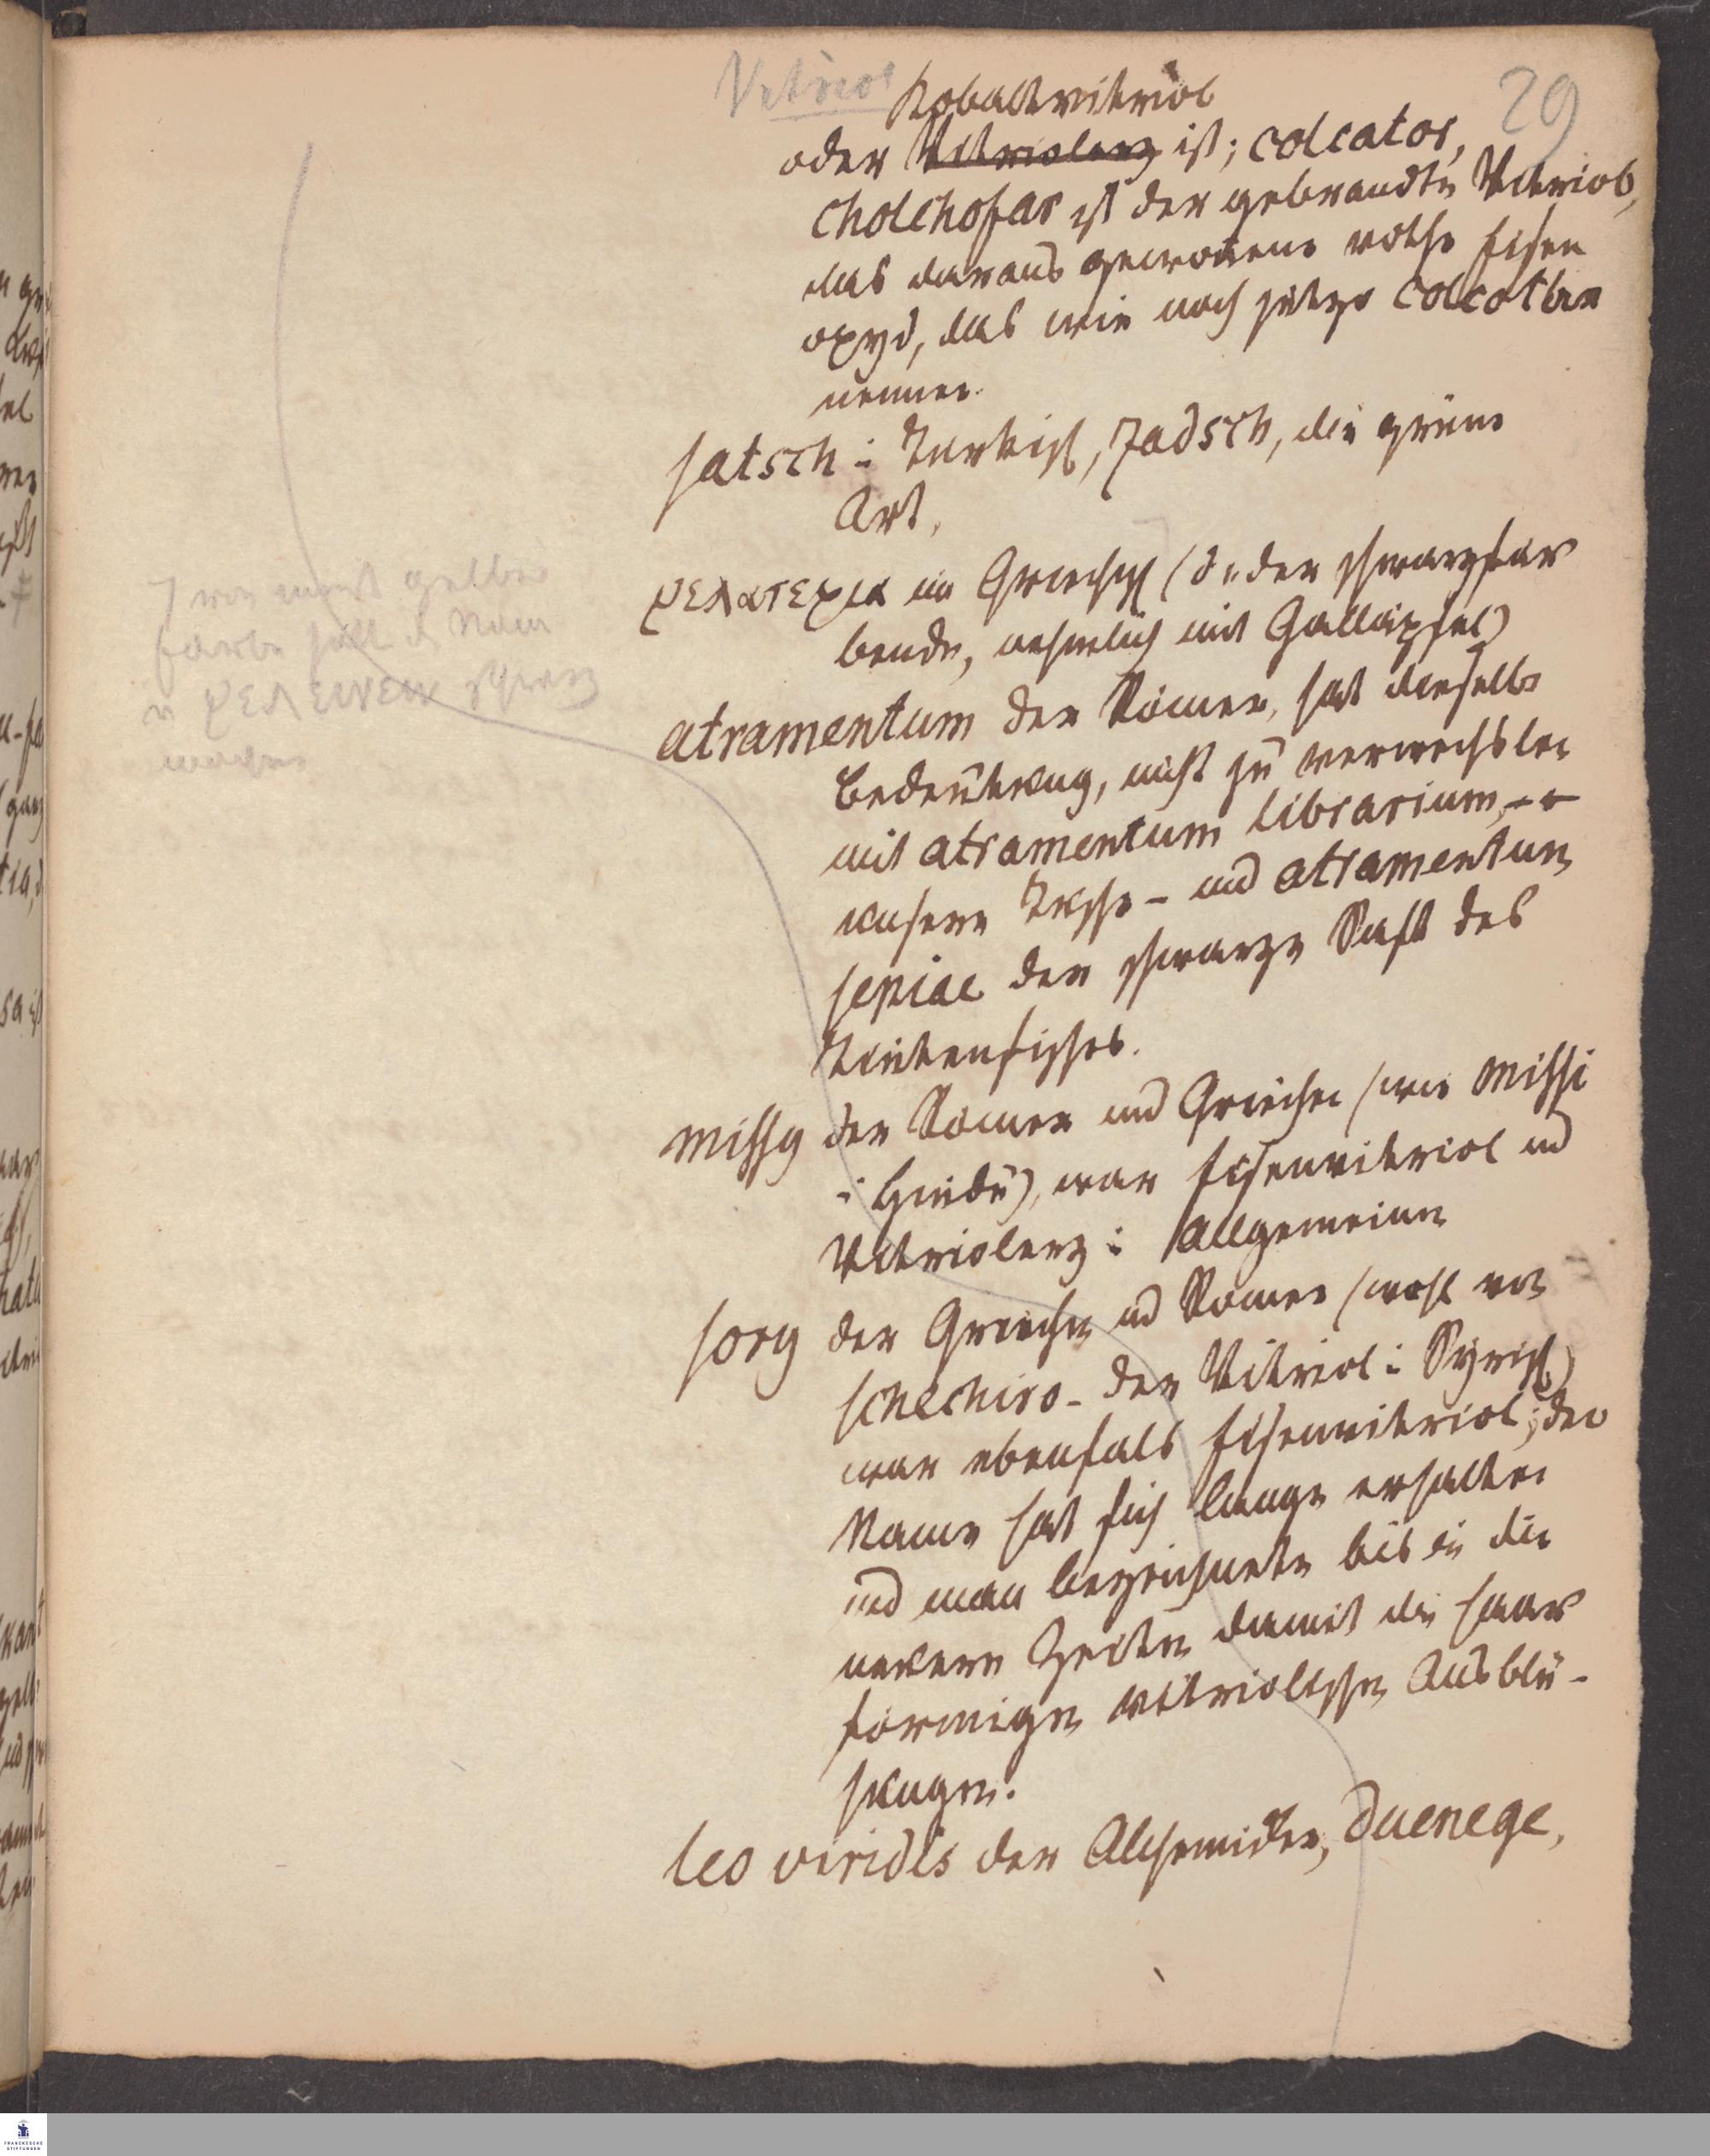 Vitriol
29
Kobaltvitriol
oder Vitriolerz ist; colcator,
cholchofar ist der gebrandte Vitriol,
das daraus gewonene rothe Eisen
oxyd, das wir noch jetzo colcothar
nennen.
satsch i Turkisch, Zadsch, die grüne
Art.
μελατερια im Griechisch (d. der schwarzfär
bende, nehmlich mit Galläpfel)
atramentum der Römer, hat dieselbe
Bedeutung, nicht zu verwechslen
mit atramentum librarium, --
unsere Tusche - und atramentum
sepiae der schwarze Saft des
Tintenfisches.
missy der Römer und Griechen (wie missi
i Hindu), war Eisenvitriol und
Vitriolerz i Allgemeinen
sory der Griechen und Römer (wohl von
schechiro - der Vitriol i Syrisch)
war ebenfals Eisenvitriol; der
Name hat sich lange erhalten
und man bezeichnete bis in die
neuern Zeiten damit die haar
formigen vitriolischen Ausblü-
hungen.
leo viridis der Alchemisten, Duenege,
von
gelber
Farbe
Nam
μελαινειν schwarz
machen
FRANCKESCHE
STIFTUNGEN